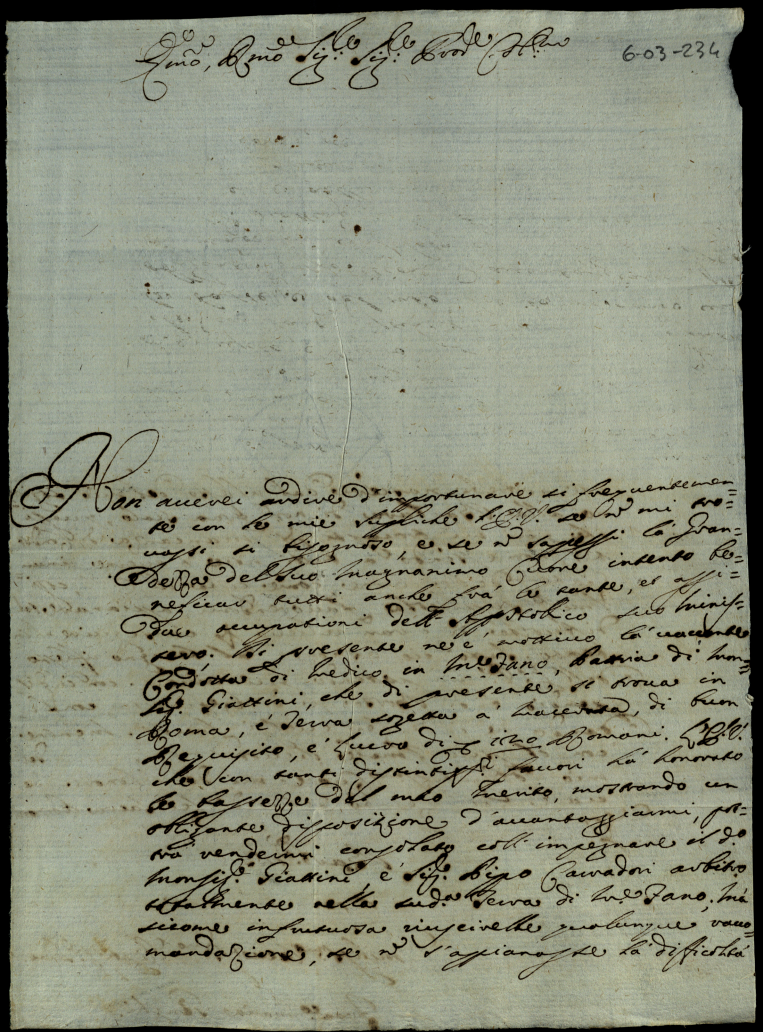 Emo, Rmo Sig:re Sig:re Prone Col:mo
6-03-234
Non auerei ardire d'importunare si frequentemen=
te con le mie supliche l'E.V. se nõ mi tro=
uassi si bisognoso, e se nõ sapessi la gran=
dezza del suo Magnanimo Cuore intento be=
neficar tutti anche frà le tante, et assi=
due occupationi dell' Apostolico suo Minis=
tero. Di presente ne è mottiuo la uacante
Condotta di Medico in Mte Fano, Patria di Mon=
sig: Giattini, che di presente si troua in
Roma, è Terra sogetta a Macerata, di buon
Requisito, è lucro di Romani. L'E.V.
che con tanti distintissi fauori hà honorato
le bassezze del mio merito, mostrando un
obligante disposizione d'auantaggiarmi, pot=
rà rendermi consolato coll' impegnare il d:o
Monsig:re Giattini, è Sig:r Pipo Caradori arbitro
totalmente nella sud:a Terra di Mte Fano. Mà
sicome infrutuosa riuscirebbe qualunque racco=
mandazione, se nõ s'appianasse la difficoltà